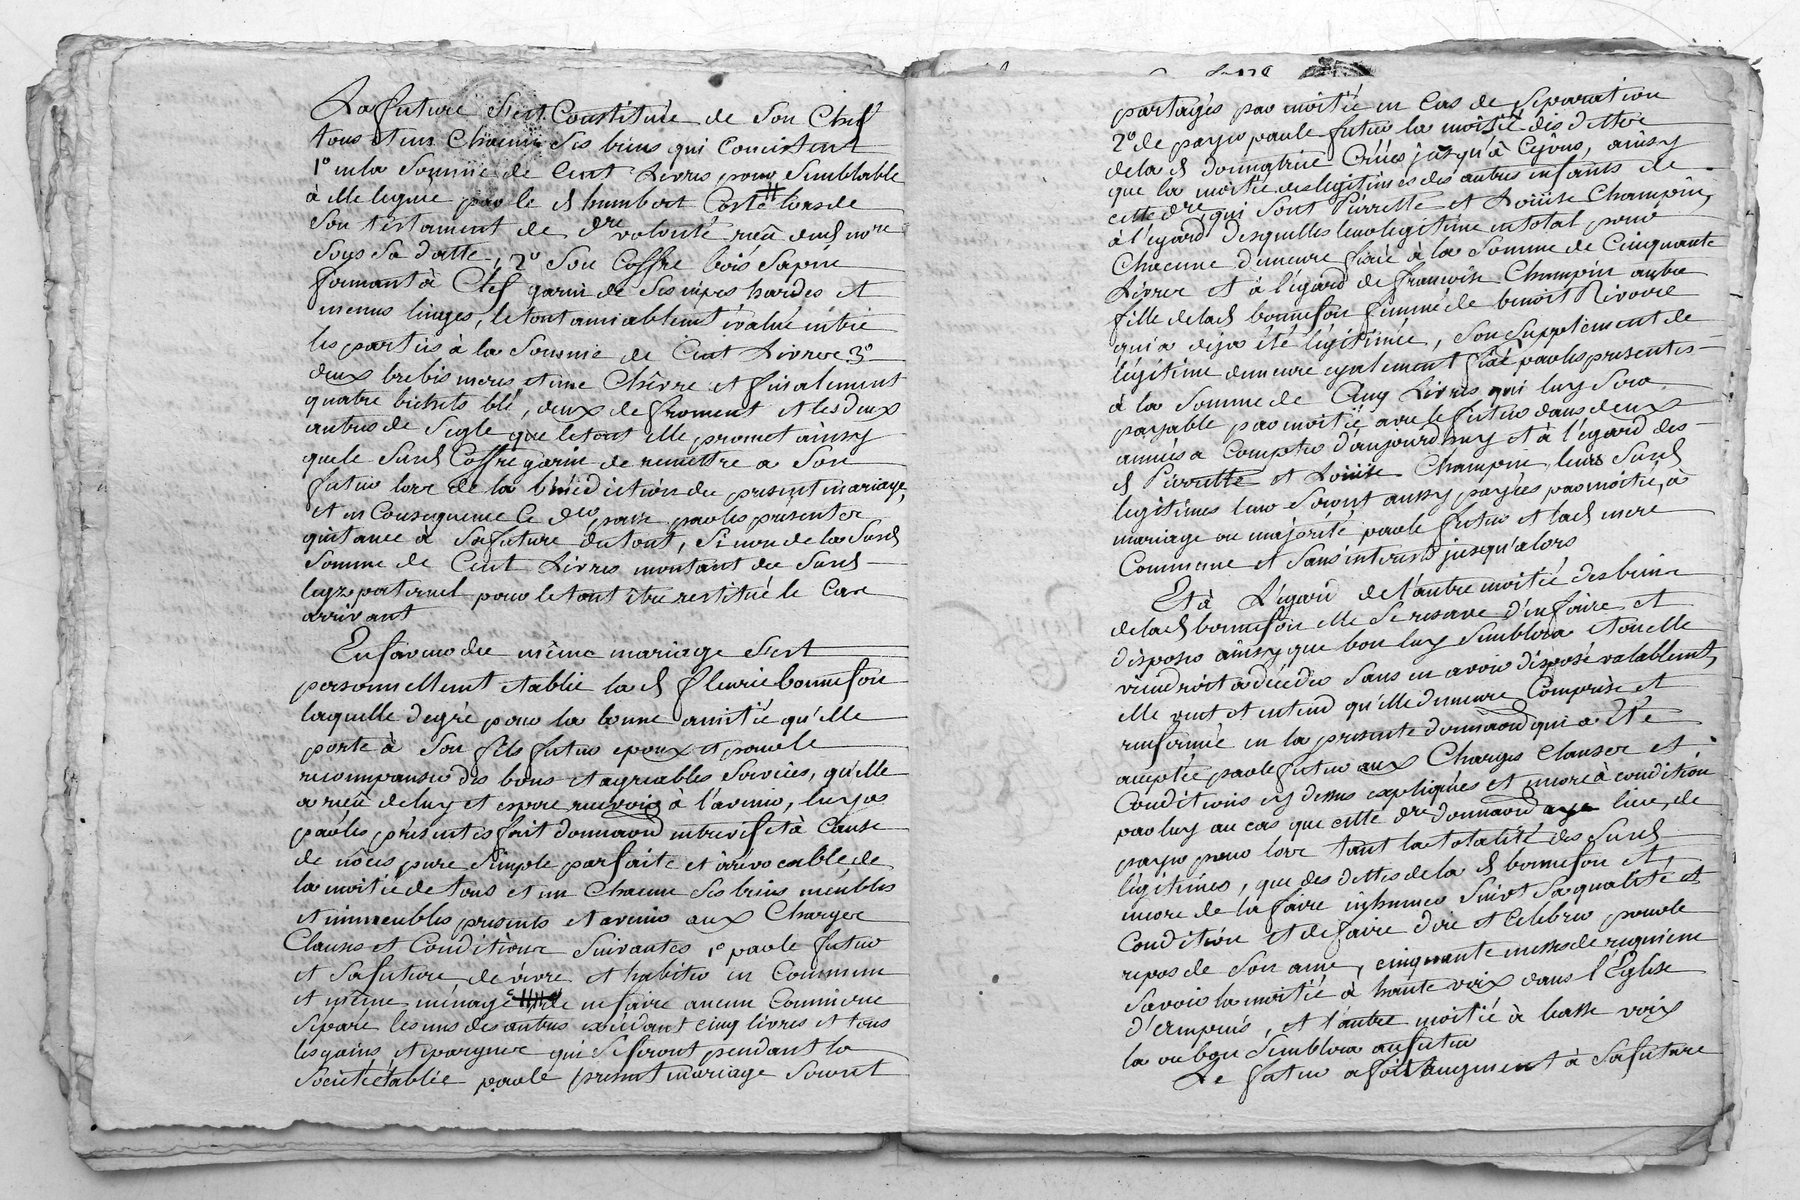 La future s'est Constituée de Son Chef
tous et un Chacun Ses biens qui Consistent
1° en la Somme de Cent Livres pour Semblable
à elle leguée par le d humbert Coste lors de
Son testament de dre volonté reçu dud nore
Sous Sa datte, 2° Son Coffre bois Sapin
fermant à Clef garni de Ses nipes hardes et
menus linges, le tout amiablemt évalué entre
les parties à la Somme de Cent Livres 3°
deux brebis meres, et une Chêvre et finalement
quatre bichets blé, deux de froment et les deux
autres de Segle que le tout elle promet ainsy
que le Susd Coffre garni de remettre a Son
futur lors de la bénédiction du present mariage,
et en Consequence Ce der passe par les presentes
quitance à Sa future du tout, Si non de la Susd
Somme de Cent Livres montant du Susd
legs paternel pour le tout être restitué le Cas
arrivant
En faveur du même mariage s'est
personnellemt etablie la d fleurie bonnefoi
laquelle de gré pour la bonne amitié qu'elle
porte à Son fils futur epoux et pour le
recompenser des bons et agreables Services, qu'elle
a reçu de luy et espere recevoir à l'avenir, luy a
par les présentes fait donnaon entrevifs et à Cause
de nôces pure Simple parfaite et irévocable de
la moitié de tous et un Chacun Ses biens meubles
et immeubles presents et avenir aux Charges
Clauses et Conditions Suivantes 1° par le futur
et Sa future de vivre et habiter en Commun
et même ménage de n'en faire aucun Commerce
Séparé les uns des autres excédant Cinq livres et tous
les gains et epargnes qui Se feront pendant la
Societé établie par le present mariage Seront
partagés par moitié en Cas de Séparation
2° de payer par le futur la moitié des dettes
de la d donnatrice Créés jusqu'à Cejour, ainsy
que la moitié des legitimes des autres enfants de
cette dre, qui Sont Pierrette et Loüise Champin,
à l'egard desquelles leur legitime en total pour
Chacune d'emeure fixée à la Somme de Cinquante
Livres et à l'égard de françoise Champin autre
fille de lad bonnefoi femme de benoit Rivoire
qui a deja été légitimée, Son Supplément de
légitime demeure egalement fixé par les presentes
à la Somme de Cinq Livres qui luy Sera
payable par moitié avec le futur dans deux
années a Compter d'aujourd'huy et à l'égard des
d Pierrette et Loüise Champin leurs Susd
legitimes leur Seront aussy payées par moitié, à
mariage ou majorité par le futur et lad mere
Commune et Sans interets jusqu'alors
Et à L'egard de l'autre moitié des biens
de lad bonnefoi elle Se reserve d'en faire et
disposer ainsy que bon luy Semblera et ou elle
viendroit a décéder Sans en avoir disposé valablemt,
elle veut et entend qu'elle demeure Comprise et
renfermée en la presente donnaon qui a été
acceptée par le futur aux Charges Clauses et
Conditions cy dessus expliquées et encore à condition
par luy au cas que cette dre donnaon aye lieu, de
payer pour lors tant la totalité des Susd
légitimes, que des dettes de la d bonnefoi et
encore de la faire inhumer Suivt Sa qualité et
Condition et de faire dire et Celebrer pour le
repos de Son ame, cinquante messes de requiem
Savoir la moitié à haute voix dans l'Eglise
d'ampuis, et l'autre moitié à basse voix
la ou bon Semblera au futur
Le futur a fait augment à Sa future